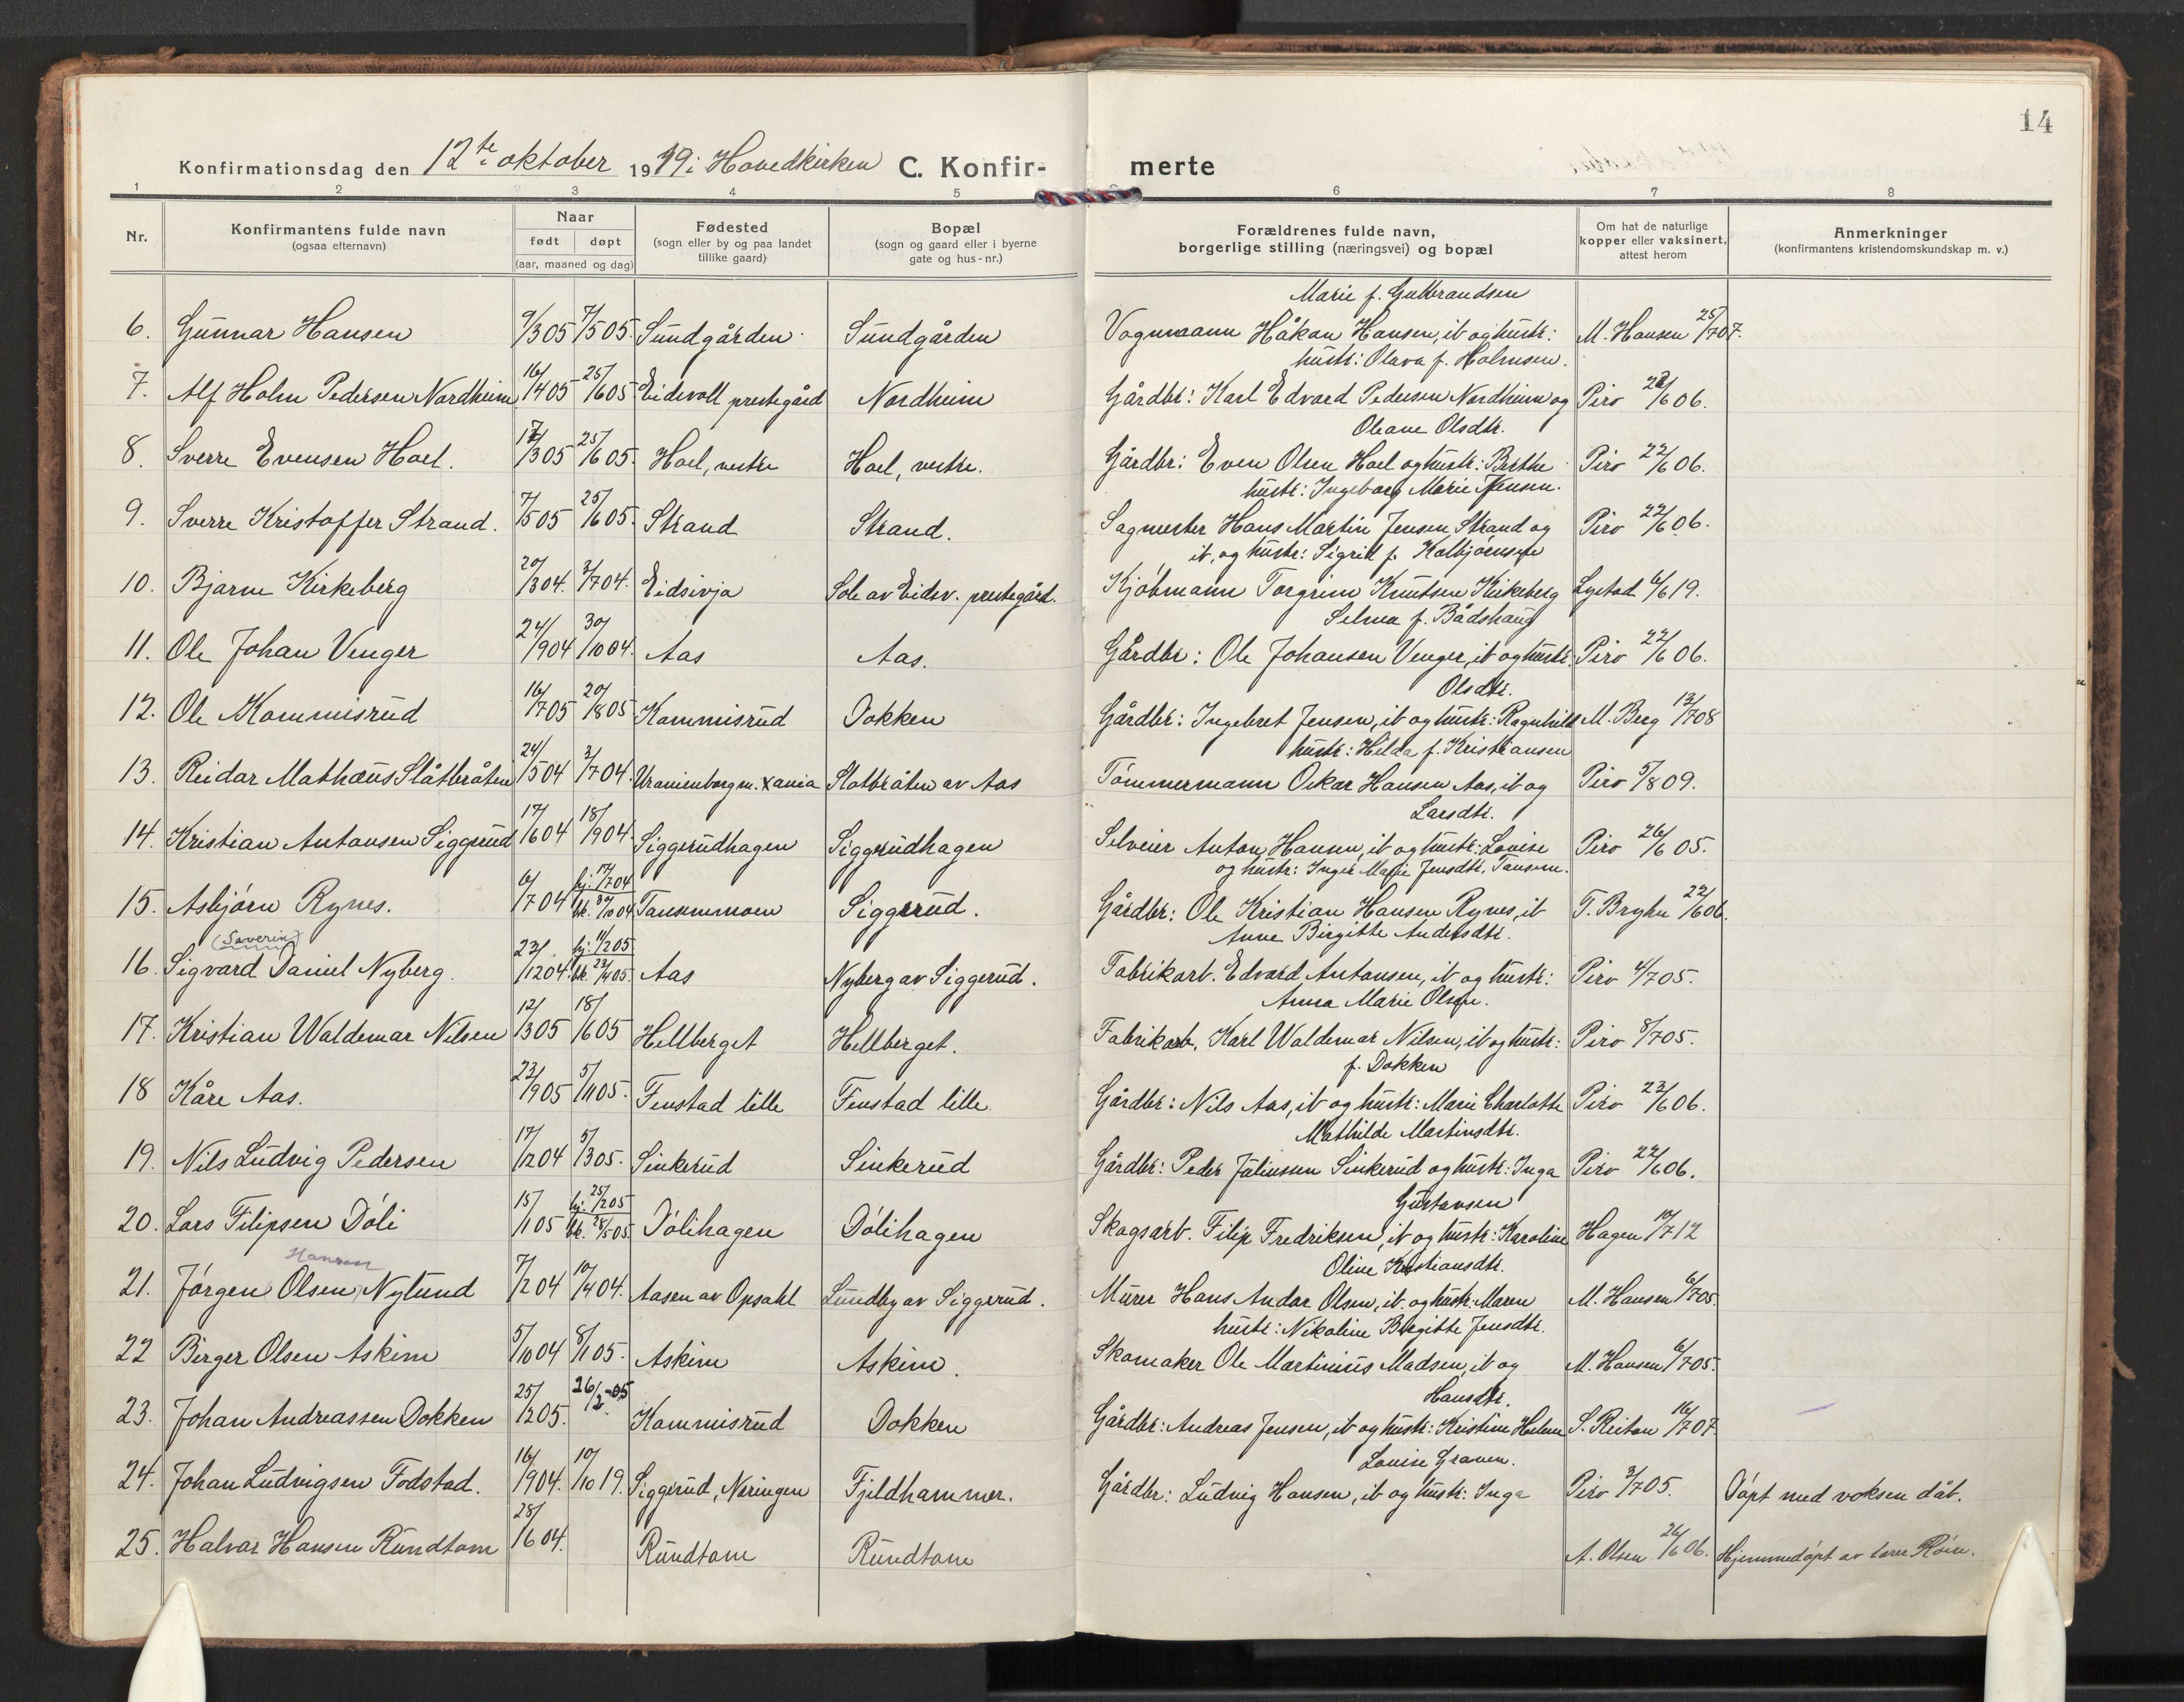 14
Konfirmationsdag den 12te oktober 1919 i Hovedkirken C. Konfirmerte
1 2 3 4 5 6 7 8
Nr. Konfirmantens fulde navn (ogsaa efternavn) Naar født døpt (aar, maaned og dag) Fødested (sogn eller by og paa landet tillike gaard) Bopæl (sogn og gaard eller i byerne gate og hus-nr.) Forældrenes fulde navn, borgerlige stilling (næringsvei) og bopæl Om hat de naturlige kopper eller vaksinert, attest herom Anmerkninger (konfirmantens kristendomskundskap m. v.)
Marie f. Gulbrandsen
6. Gunnar Hansen 9/3 05 7/5 05. Sundgården Sundgården Vognmann Håkon Hansen, ib og hustr: M. Hansen 25/7 07.
hustr: Olava f. Holmsen.
7. Alf Holm Pedersen Nordheim 16/4 05 25/6 05 Eidsvoll prestegård Nordheim Gårdbr: Karl Edvard Pedersen Nordheim og Piro 22/6 06.
Oleane Olsdtr.
8. Sverre Evensen Hoel. 17/3 05 25/6 05. Hoel, vestre Hoel, vestre. Gårdbr: Even Olsen Hoel og hustr: Berthe Piro 22/6 06.
hustr: Ingeborg Marie Jensen.
9. Sverre Kristoffer Strand. 7/5 05 25/6 05. Strand Strand. Sagmester Hans Martin Jensen Strand og Piro 22/6 06.
ib. og hustr: Sigrid f. Kolbjørnsen
10. Bjarne Kirkeberg 20/3 04. 3/7 04. Eidsivja Sole av Eidsv. prestegård. Kjøbmann Torgrim Knutsen Kirkeberg Lystad 6/6 19.
Selma f. Bådshaug
11. Ole Johan Venger 24/9 04 30/10 04. Aas Aas. Gårdbr: Ole Johansen Venger, ib og hustr: Piro 22/6 06.
Olsdtr.
12. Ole Kommisrud 16/7 05 20/8 05 Kommisrud Dokken Gårdbr: Ingebret Jensen, ib og hustr: Ragnhild M. Berg 13/7 08
hustr: Hilda f. Kristiansen
13. Reidar Mathæus Slåtbråten 24/5 04 3/7 04. Uranienborg m. Xania Slotbråten av Aas Tømmermann Oskar Hansen Aas, ib og Piro 5/8 09.
Larsdtr.
14. Kristian Antonsen Siggerud 17/6 04 18/9 04. Siggerudhagen Siggerudhagen Selveier Anton Hansen, ib og hustr: Lovise Piro 26/6 05.
og hustr: Inger Marie Jensdtr. Tansem.
15. Asbjørn Rynes. 6/7 04 hj: 17/7 04 kr. 30/10 04 Tansemmoen Siggerud. Gårdbr: Ole Kristian Hansen Rynes, ib T. Bryhn 22/6 06.
(Severin) Anne Birgitte Andersdtr.
16. Sigvard Daniel Nyberg. 23/12 04 hj: 11/2 05 kr. 23/4 05. Aas Nyberg av Siggerud. Fabrikarb. Edvard Antonsen, ib og hustr: Piro 4/7 05.
Anna Marie Olsen.
17. Kristian Waldemar Nilsen 12/3 05 18/6 05 Hellberget Hellberget. Fabrikarb. Karl Waldemar Nilsen, ib og hustr: Piro 8/7 05.
f. Dokken
18 Kåre Aas. 23/9 05 5/11 05. Finstad lille Finstad lille. Gårdbr: Nils Aas, ib og hustr: Marie Charlotte Piro 23/6 06.
Mathilde Martinsdtr.
19. Nils Ludvig Pedersen 17/12 04 5/3 05. Sinkerud Sinkerud Gårdbr: Peder Juliussen Sinkerud og hustr: Inga Piro 22/6 06.
Gustavsen
20. Lars Filipsen Døli 15/1 05 hj: 25/2 05 kr. 28/5 05. Dølihagen Dølihagen Skogsarb. Filip Fredriksen, ib og hustr: Karoline Hagen 10/7 12
Hansen Oline Kristiansdtr.
21. Jørgen Olsen Nylund 7/2 04 10/4 04. Aasen av Opsahl Lundby av Siggerud. Murer Hans Andar Olsen, ib. og hustr: Maren M. Hansen 6/7 05.
hustr: Nikoline Birgitte Jensdtr.
22 Birger Olsen Askim 5/10 04 8/1 05. Askim Askim. Skomaker Ole Martinius Madsen, ib og M. Hansen 6/7 05.
Hansdtr.
23. Johan Andreassen Dokken 25/1 205. 26/2-05 Kommisrud Dokken Gårdbr: Andreas Jensen, ib og hustr: Kristine Helene S. Reitan 16/7 07.
Louise Graven.
24. Johan Ludvigsen Fodstad. 16/9 04. 10/10 19. Siggerud, Neringen Fjeldhammer. Gårdbr: Ludvig Hansen, ib og hustr: Inga Piro 3/7 05. Døpt med voksen dåb.
25. Halvar Hansen Rundtom 28/6 04. Rundtom Rundtom A. Olsen 26/6 06. Hjemmedøpt av lærer Røin.